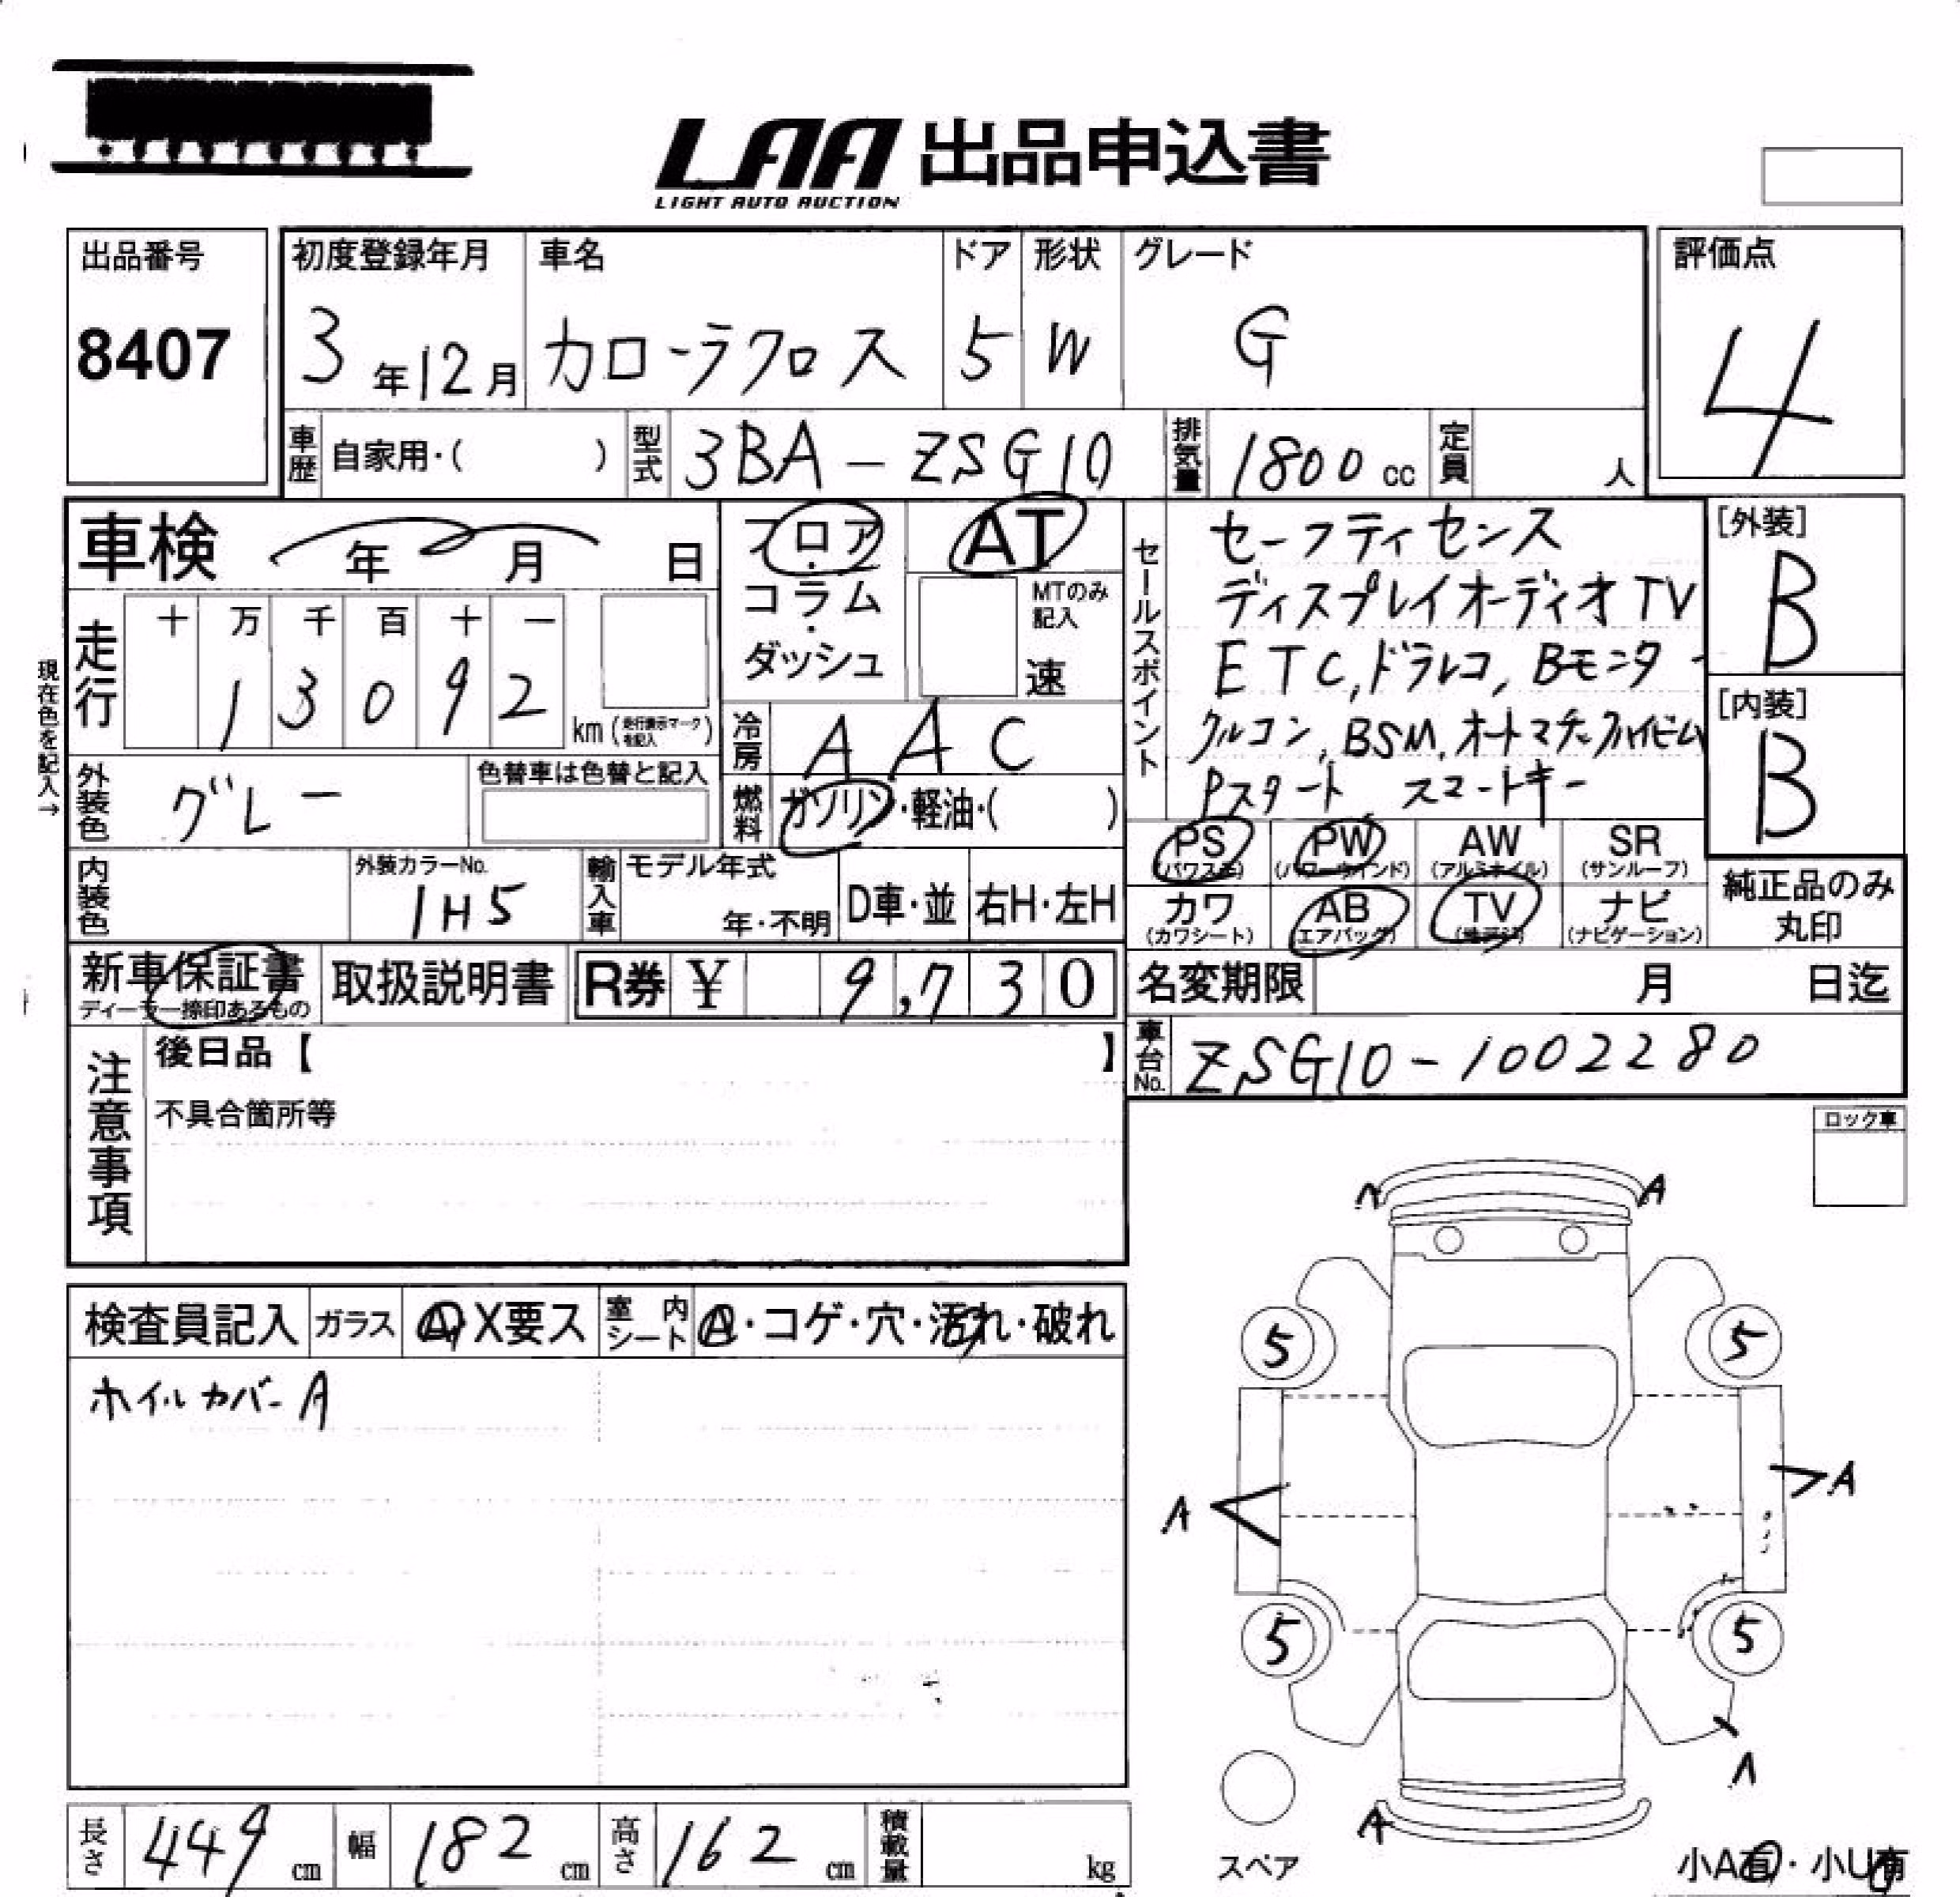 LAA 出品申込書
LIGHT AUTO AUCTION
出品番号
8407
初度登録年月 車名 ドア 形状 グレード
3年12月 カローラクロス 5 W G
評価点
4
車歴 自家用・( ) 型式 3BA-ZSG10 排気量 1800cc 定員 人
車検 年 月 日
フロア・コラム・ダッシュ
AT
MTのみ記入
速
走行 十 万 千 百 十 一
13092 km (走行表示マークを記入)
現在色を記入→
冷房 AAC
外装色 グレー
色替車は色替と記入
燃料 ガソリン・軽油・( )
セールスポイント
セーフティセンス
ディスプレイオーディオTV
ETC,ドラレコ,Bモニター
クルコン,BSM,オートマチックハイビーム
Pスタート スマートキー
[外装]
B
[内装]
B
内装色
外装カラーNo.
1H5
輸入車 モデル年式
年・不明 D車・並 右H・左H
PS (パワステ) PW (パワーウインド) AW (アルミホイル) SR (サンルーフ)
カワ (カワシート) AB (エアバッグ) TV ナビ (ナビゲーション)
純正品のみ
丸印
新車保証書
ディーラー捺印あるもの
取扱説明書 R券 ¥ 9,730
名変期限 月 日迄
車台No. ZSG10-1002280
注意事項
後日品【 】
不具合箇所等
ロック車
検査員記入 ガラス A・X要ス 室内シート A・コゲ・穴・汚れ・破れ
ホイルカバーA
A A
5 5
A A
5 5
A
A
スペア
小A有・小U有
長さ 449cm 幅 182cm 高さ 162cm 積載量 kg